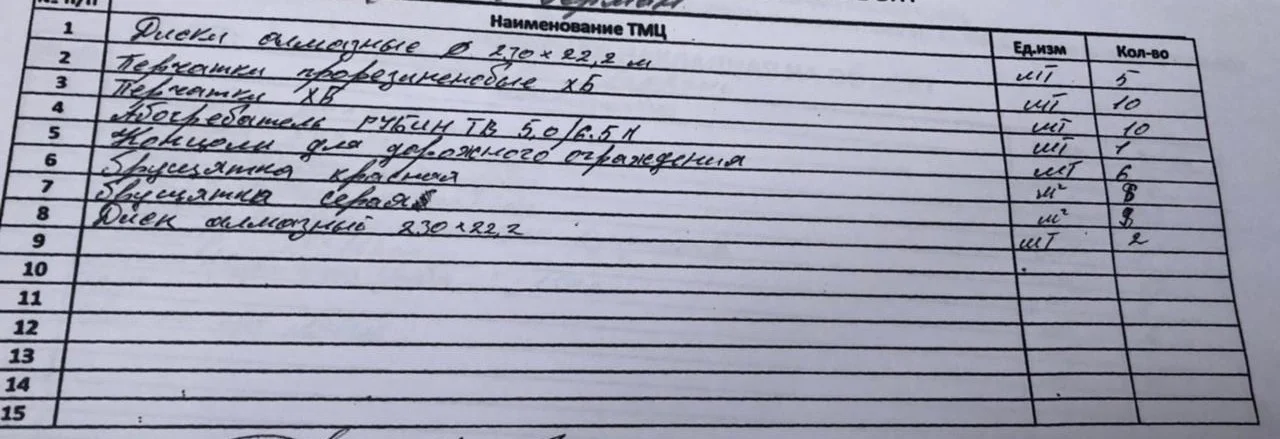 № п/п Наименование ТМЦ Ед.изм Кол-во
1 Диски алмазные ø 230×22,2 м шт 5
2 Перчатки прорезиненовые ХБ шт 10
3 Перчатки ХБ шт 10
4 Абогреватель РУБИН ТВ 5,0/6.5 Н шт 1
5 Консоли для дорожного ограждения шт 6
6 Брущятка красная м² 8
7 Брущятка серая м² 8
8 Диск алмазный 230×22,2 шт 2
9
10
11
12
13
14
15